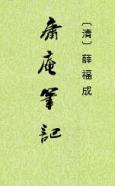 〔清〕薛福成
庸庵筆記